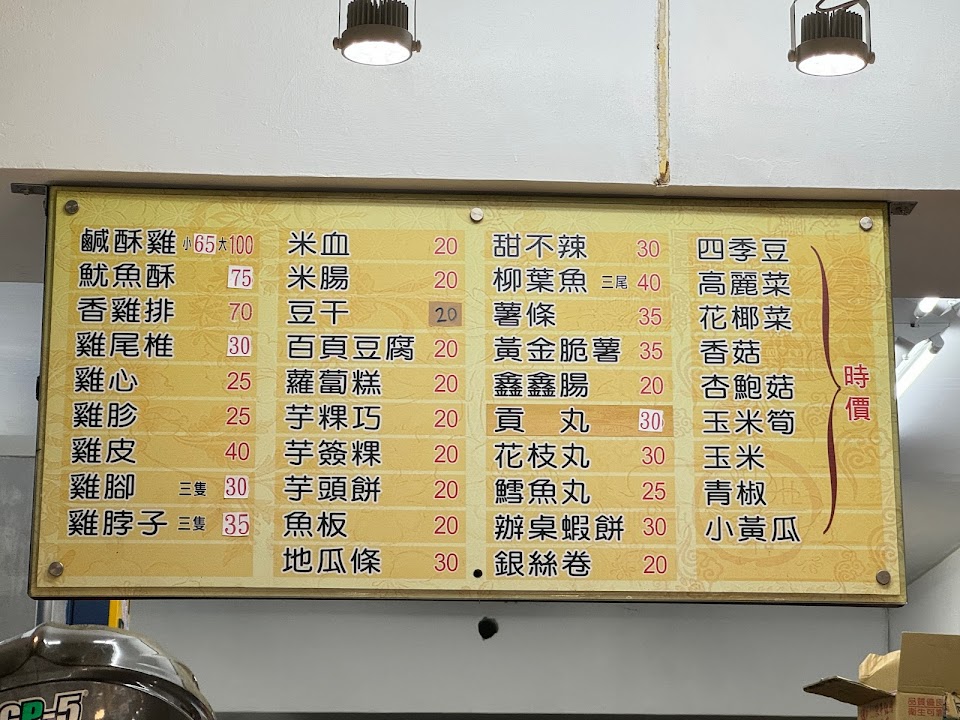 鹹酥雞 小65大100
魷魚酥 75
香雞排 70
雞尾椎 30
雞心 25
雞胗 25
雞皮 40
雞腳 三隻 30
雞脖子 三隻 35
米血 20
米腸 20
豆干 20
百頁豆腐 20
蘿蔔糕 20
芋粿巧 20
芋簽粿 20
芋頭餅 20
魚板 20
地瓜條 30
甜不辣 30
柳葉魚 三尾 40
薯條 35
黃金脆薯 35
鑫鑫腸 20
貢丸 30
花枝丸 30
鱈魚丸 25
辦桌蝦餅 30
銀絲卷 20
四季豆
高麗菜
花椰菜
香菇
杏鮑菇
玉米筍
玉米
青椒
小黃瓜
時價
GP-5